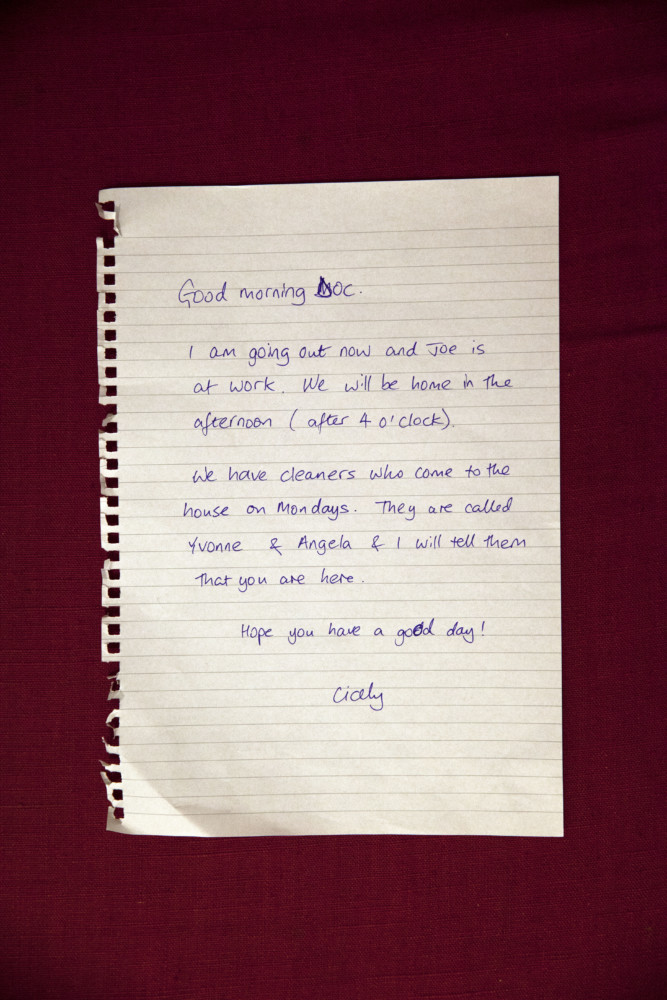 Good morning Noc.
I am going out now and Joe is
at work. We will be home in the
afternoon (after 4 o'clock).
We have cleaners who come to the
house on Mondays. They are called
Yvonne & Angela & I will tell them
that you are here.
Hope you have a good day!
Cicely